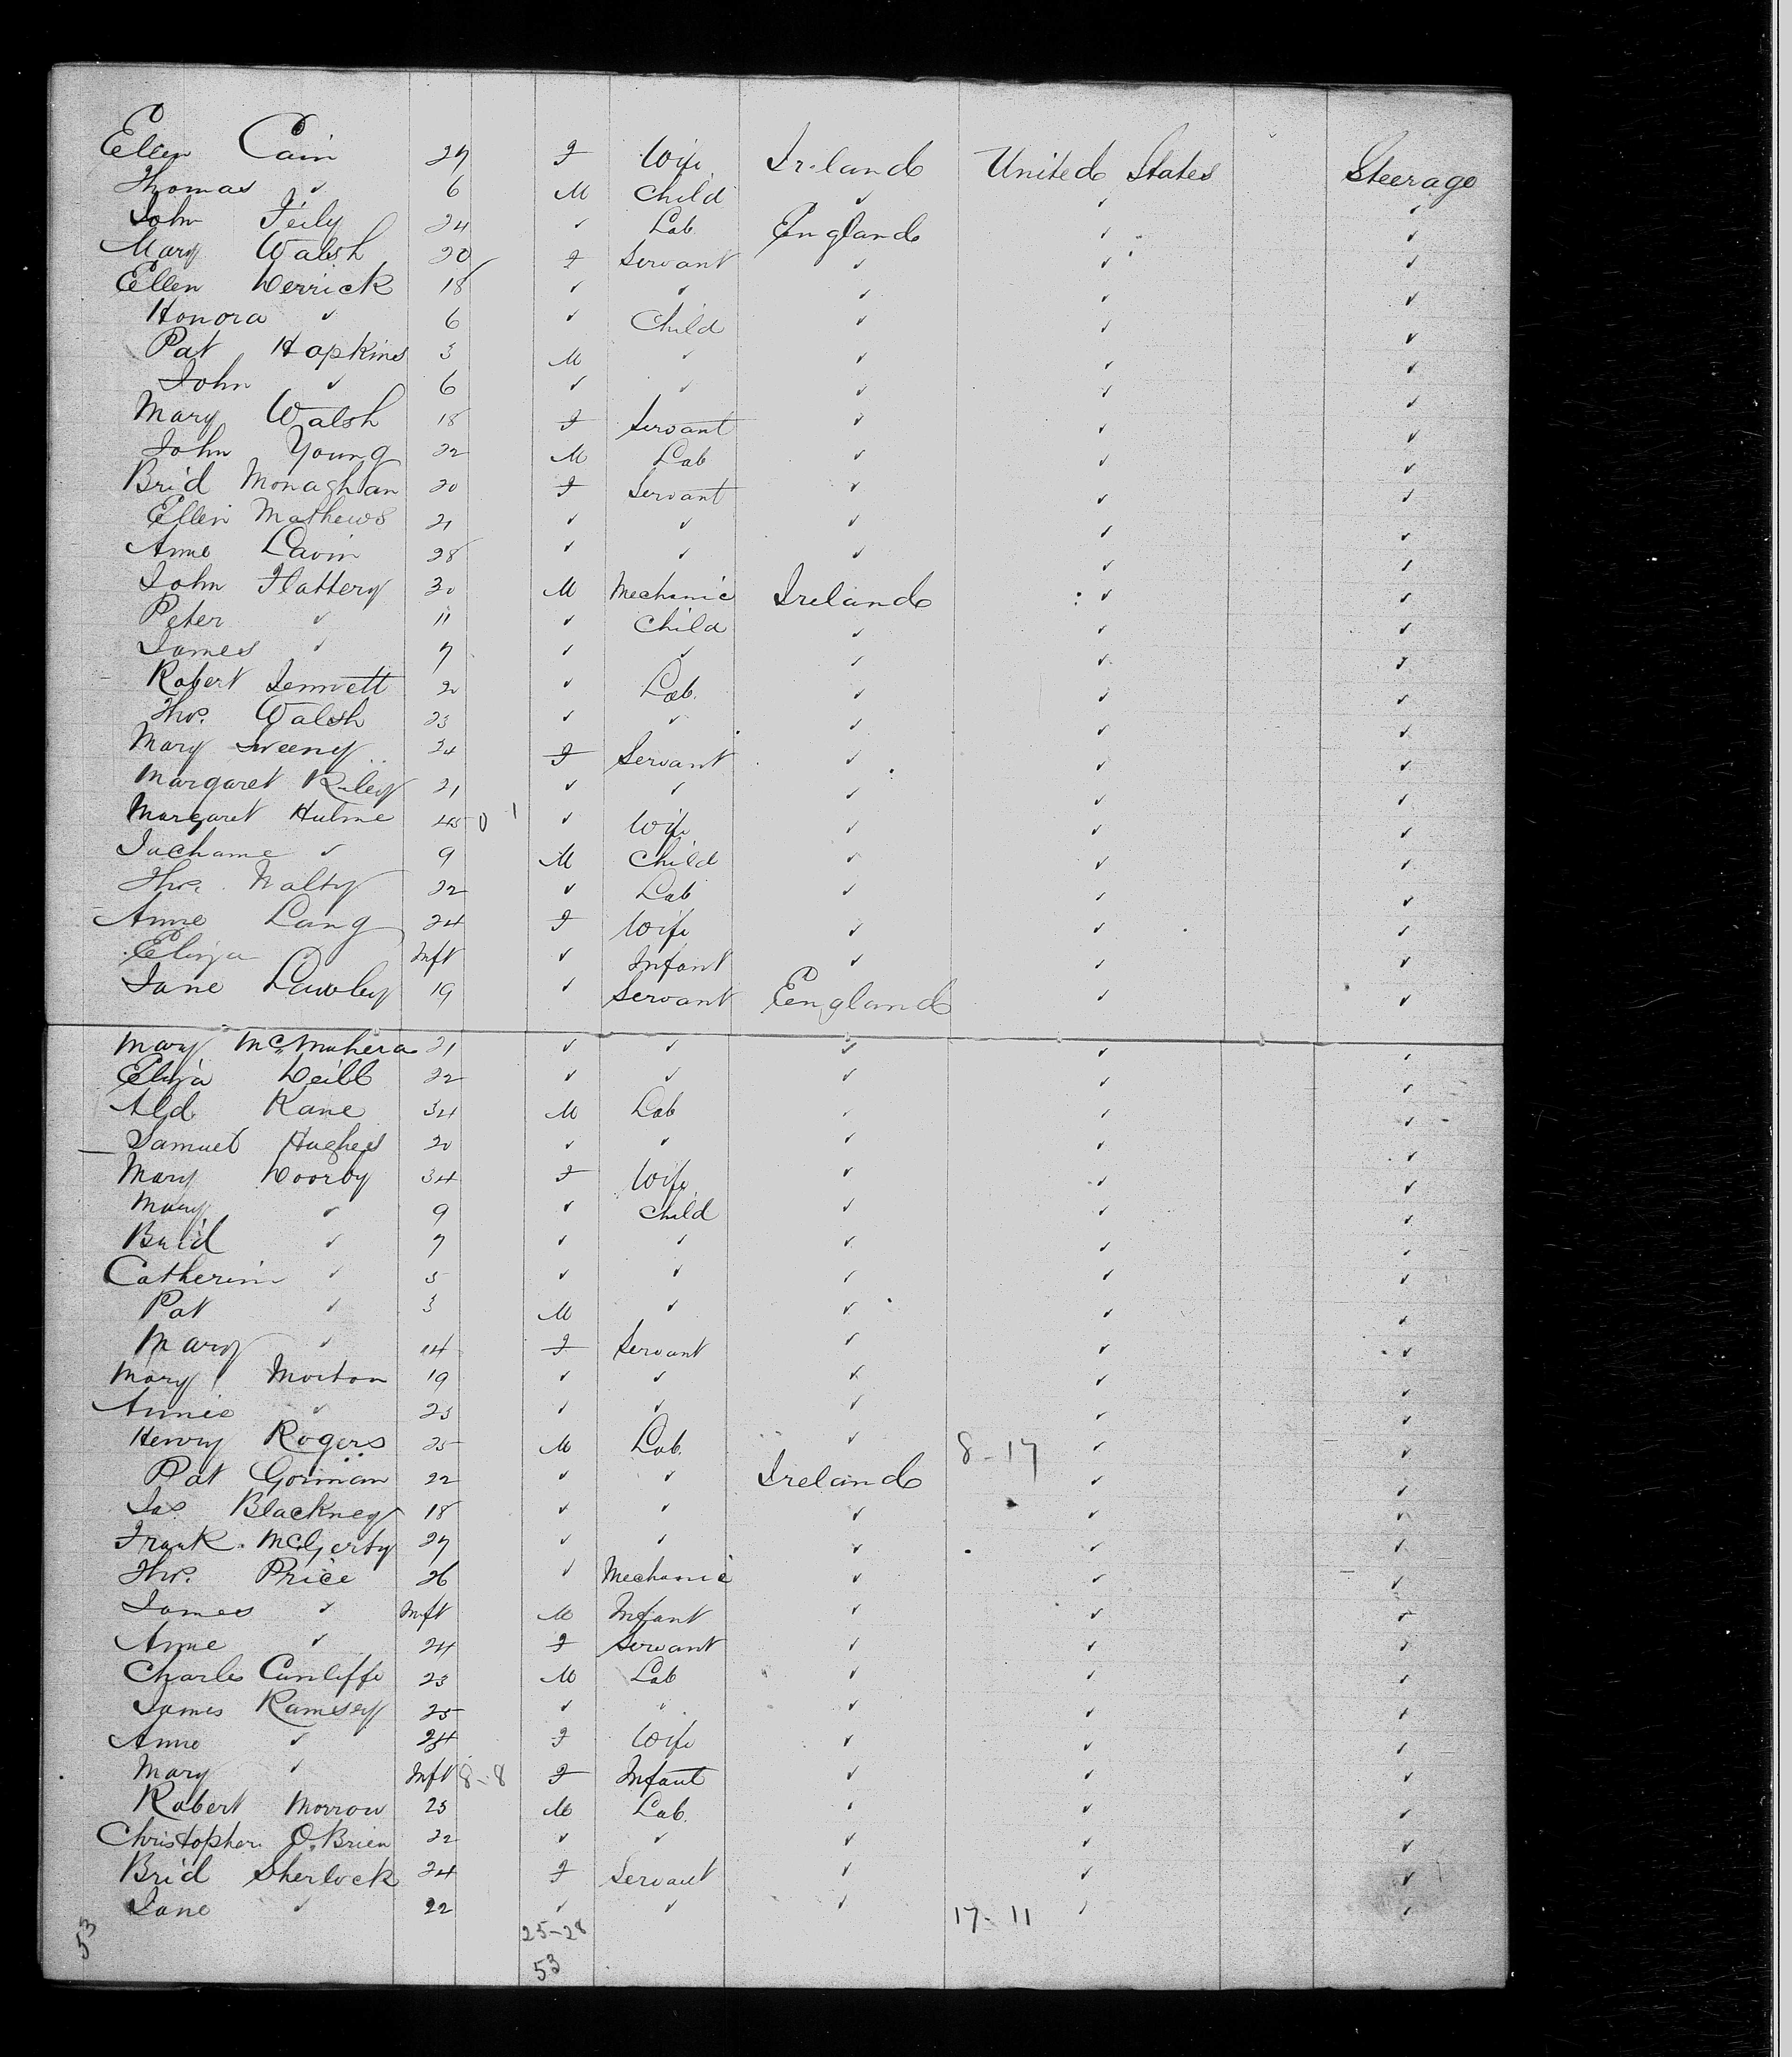 Ellen Cain 27 F Wife Ireland United States Steerage
Thomas ✓ 6 M Child ✓ ✓ ✓
John Feily 24 ✓ Lab England ✓ ✓
Mary Walsh 20 F Servant ✓ ✓ ✓
Ellen Derrick 18 ✓ ✓ ✓ ✓ ✓
Honora ✓ 6 ✓ Child ✓ ✓ ✓
Pat Hopkins 3 M ✓ ✓ ✓ ✓
John ✓ 6 ✓ ✓ ✓ ✓ ✓
Mary Walsh 18 F Servant ✓ ✓ ✓
John Young 22 M Lab ✓ ✓ ✓
Brid Monaghan 20 F Servant ✓ ✓ ✓
Ellen Mathews 21 ✓ ✓ ✓ ✓ ✓
Anne Lavin 28 ✓ ✓ ✓ ✓ ✓
John Flattery 30 M Mechanic Ireland ✓ ✓
Peter ✓ 11 ✓ Child ✓ ✓ ✓
James ✓ 7 ✓ ✓ ✓ ✓ ✓
Robert Jennett 20 ✓ Lab. ✓ ✓ ✓
Thos. Walsh 23 ✓ ✓ ✓ ✓ ✓
Mary Sweeny 24 F Servant ✓ ✓ ✓
Margaret Riley 21 ✓ ✓ ✓ ✓ ✓
Margaret Hulme 45 0 1 ✓ Wife ✓ ✓ ✓
✓ 9 M Child ✓ ✓ ✓
Thos. Nalty 22 ✓ Lab ✓ ✓ ✓
Anne Lang 24 F Wife ✓ ✓ ✓
Eliza Inft ✓ Infant ✓ ✓ ✓
Jane Lawley 19 ✓ Servant England ✓ ✓
Mary 21 ✓ ✓ ✓ ✓ ✓
Eliza 22 ✓ ✓ ✓ ✓ ✓
Ald Kane 34 M Lab ✓ ✓ ✓
Samuel Hughes 20 ✓ ✓ ✓ ✓ ✓
Mary Doorby 34 F Wife ✓ ✓ ✓
Mary ✓ 9 ✓ Child ✓ ✓ ✓
Brid ✓ 7 ✓ ✓ ✓ ✓ ✓
Catherin ✓ 5 ✓ ✓ ✓ ✓ ✓
Pat ✓ 3 M ✓ ✓ ✓ ✓
Mary ✓ 14 F Servant ✓ ✓ ✓
Mary Morton 19 ✓ ✓ ✓ ✓ ✓
Annie ✓ 23 ✓ ✓ ✓ ✓ ✓
Henry Rogers 25 M Lab. ✓ 8-17 ✓ ✓
Pat Gorman 22 ✓ ✓ Ireland ✓ ✓
Jas. Blackney 18 ✓ ✓ ✓ ✓ ✓
Frank McGerty 27 ✓ ✓ ✓ ✓ ✓
Thos. Price 26 ✓ Mechanic ✓ ✓ ✓
James ✓ Inft M Infant ✓ ✓ ✓
Anne ✓ 24 F Servant ✓ ✓ ✓
Charles Cunliffe 23 M Lab ✓ ✓ ✓
James Ramsey 25 ✓ ✓ ✓ ✓ ✓
Anne ✓ 24 F Wife ✓ ✓ ✓
Mary ✓ Inft 8-8 F Infant ✓ ✓ ✓
Robert Morrow 23 M Lab. ✓ ✓ ✓
Christopher O.Brien 22 ✓ ✓ ✓ ✓ ✓
Brid Sherlock 24 F Servant ✓ ✓ ✓
Jane ✓ 22 ✓ ✓ ✓ 17-11 ✓ ✓
53 25-28
53